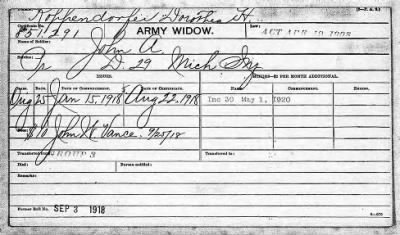 Koppendorfer Dorothea H.
(3-747 A.)
851,291
ARMY WIDOW.
Law: ACT APR 19 1908
Name of Soldier:
John A.
Service:
Co D. 29 Mich Inf
ISSUES.
MINORS—$2 PER MONTH ADDITIONAL.
RATE. DATE OF COMMENCEMENT. DATE OF CERTIFICATE. NAME. COMMENCEMENT. ENDING.
Aug 25 Jan 15, 1918 Aug 22, 1918 Inc 30 May 1, 1920
$10 John W. Vance. 9/25/18
Transferred from GROUP 3
Died: Person entitled:
Remarks:
Former Roll No. SEP 3 1918